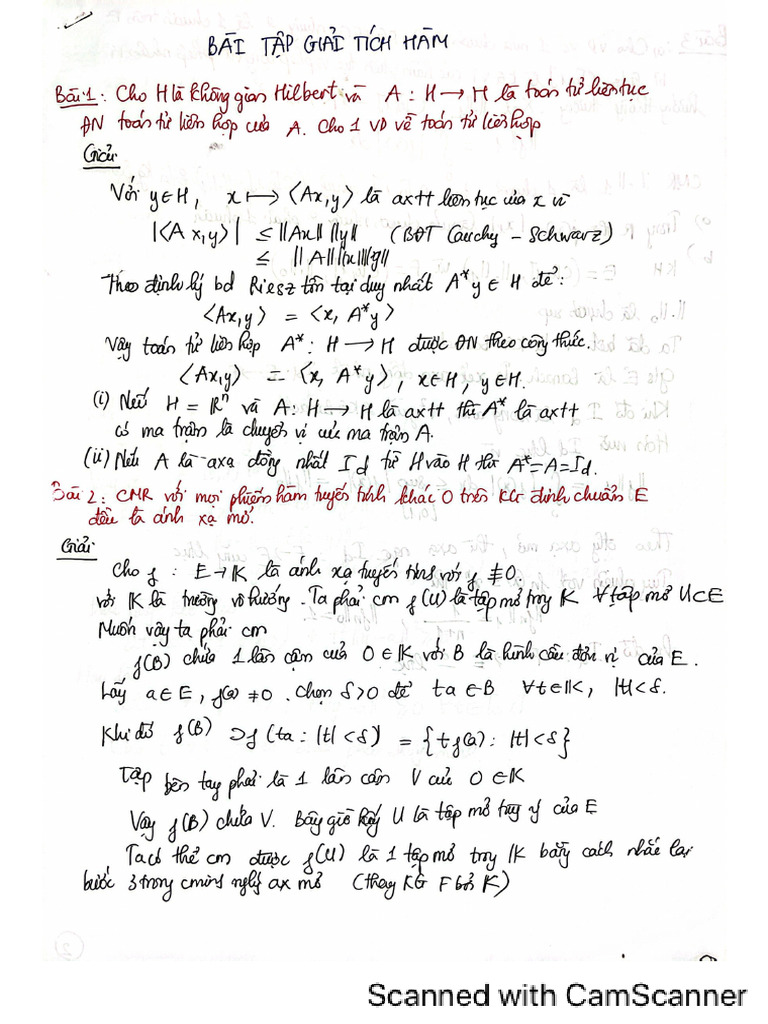 BÀI TẬP GIẢI TÍCH HÀM
Bài 1: Cho H là không gian Hilbert và A : H → H là toán tử liên tục
ĐN toán tử liên hợp của A. Cho 1 VD về toán tử liên hợp
Giải
Với y∈H, x ↦ ⟨Ax,y⟩ là axtt liên tục của x vì
|⟨Ax,y⟩| ≤ ||Ax|| ||y|| (BĐT Cauchy – Schwarz)
≤ ||A|| ||x|| ||y||
Theo định lý bd Riesz tồn tại duy nhất A*y ∈ H để:
⟨Ax,y⟩ = ⟨x, A*y⟩
Vậy toán tử liên hợp A* : H → H được ĐN theo công thức.
⟨Ax,y⟩ = ⟨x, A*y⟩, x∈H, y∈H.
(i) Nếu H = ℝⁿ và A: H → H là axtt thì A* là axtt
có ma trận là chuyển vị của ma trận A.
(ii) Nếu A là axạ đồng nhất Id từ H vào H thì A*=A=Id.
Bài 2: CMR với mọi phiếm hàm tuyến tính khác 0 trên KG định chuẩn E
đều là ánh xạ mở.
Giải
Cho f : E → K là ánh xạ tuyến tính với f ≢ 0
với K là trường vô hướng. Ta phải cm f(U) là tập mở trg K ∀ tập mở U⊂E
Muốn vậy ta phải cm
f(B) chứa 1 lân cận của 0 ∈ K với B là hình cầu đơn vị của E.
Lấy a∈E, f(a) ≠ 0. Chọn δ>0 để ta∈B ∀t∈K, |t|<δ.
Khi đó f(B) ⊃ f(ta : |t|<δ) = {tf(a) : |t|<δ}
Tập bên tay phải là 1 lân cận V của 0 ∈ K
Vậy f(B) chứa V. Bây giờ lấy U là tập mở tuỳ ý của E
Ta có thể cm được f(U) là 1 tập mở trg K bằng cách nhắc lại
bước 3 trong cminh nglý ax mở (thay KG F bởi K)
Scanned with CamScanner